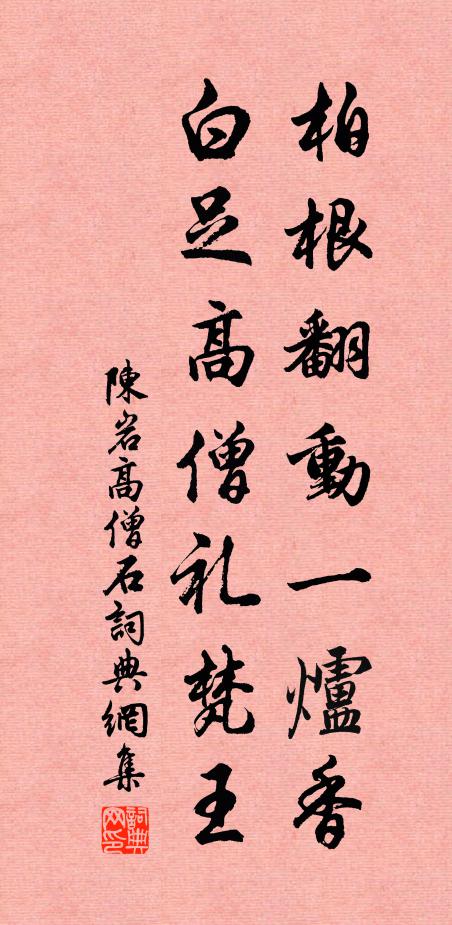 柏根翻動一爐香
白足高僧礼梵王
陳岩高僧石詞典網集
詞典网印